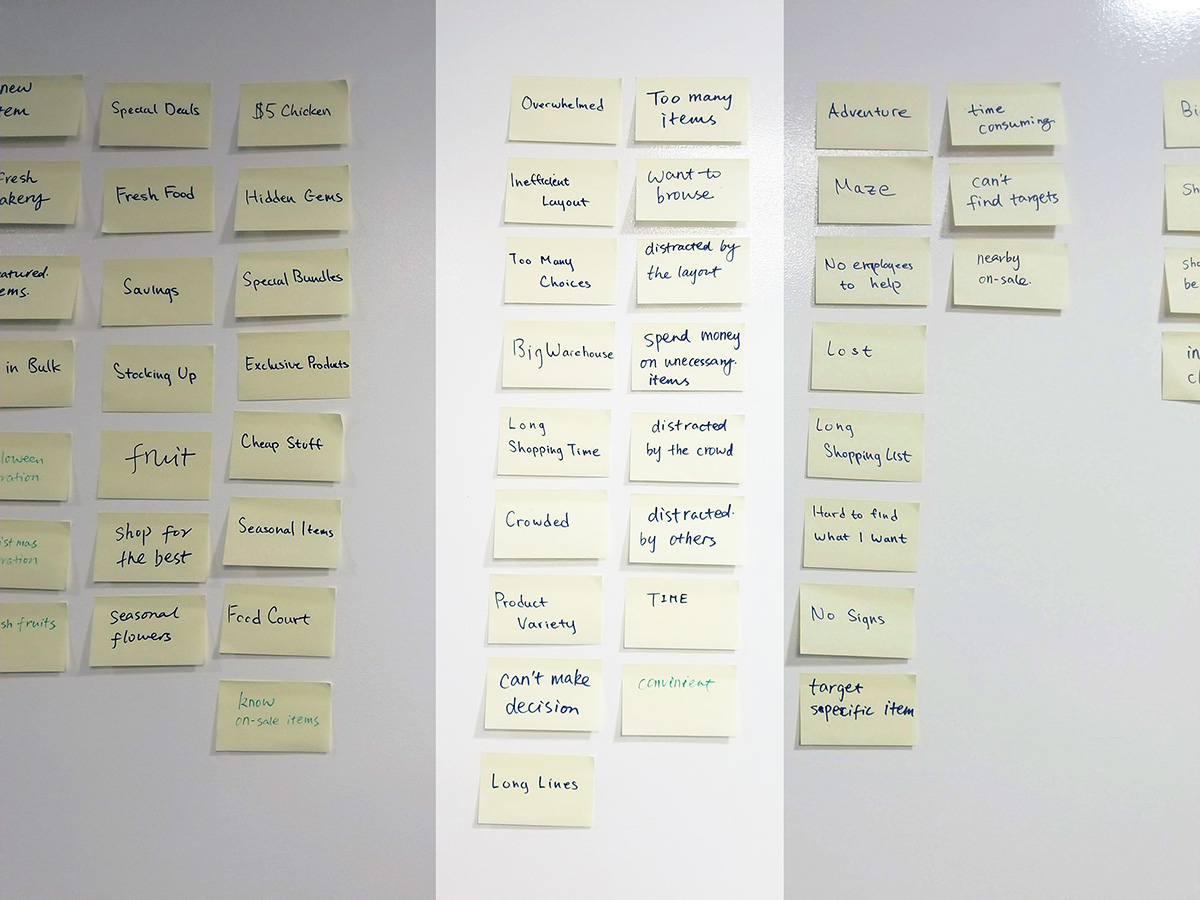 new
tem
fresh
akery
eatured
ems.
in Bulk
loween
ration
ist mas
ration
sh fruits
Special Deals
Fresh Food
Savings
Stocking Up
fruit
shop for
the best
seasonal
flowers
$5 Chicken
Hidden Gems
Special Bundles
Exclusive Products
Cheap Stuff
Seasonal Items
Food Court
know
on-sale items
Overwhelmed
Inefficient
Layout
Too Many
Choices
Big Warehouse
Long
Shopping Time
Crowded
Product
Variety
can't make
decision
Long Lines
Too many
items
want to
browse
distracted by
the layout
spend money
on unecessary
items
distracted
by the crowd
distracted
by others
TIME
convinient
Adventure
Maze
No employees
to help
Lost
Long
Shopping List
Hard to find
what I want
No Signs
target
sepecific item
time
consuming
can't
find targets
nearby
on-sale.
Bi
Sh
sho
be
in